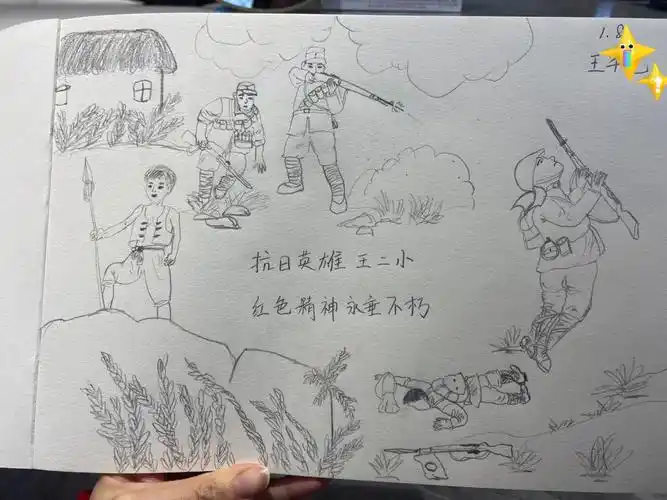 1.8
王
抗日英雄 王二小
红色精神永垂不朽